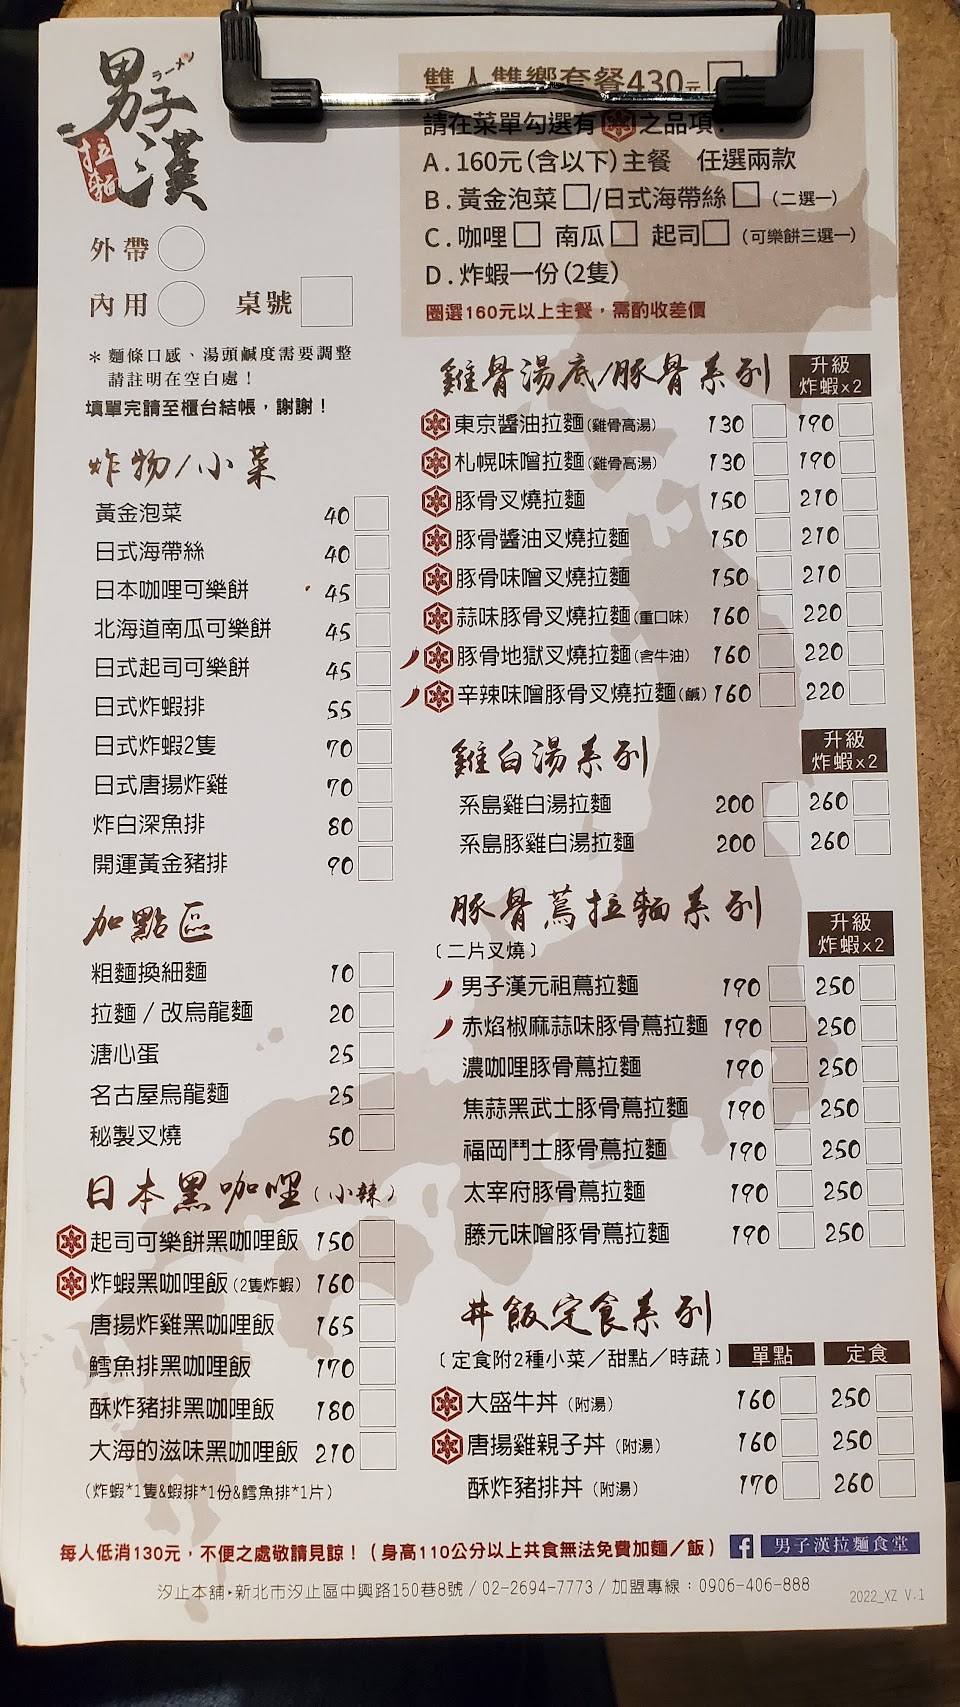 男子漢
ラーメン
拉麵
外帶
內用 桌號
＊麵條口感、湯頭鹹度需要調整
請註明在空白處！
填單完請至櫃台結帳，謝謝！
雙人雙響套餐430元
請在菜單勾選有 之品項：
A.160元(含以下)主餐 任選兩款
B.黃金泡菜□/日式海帶絲□ (二選一)
C.咖哩□ 南瓜□ 起司□ (可樂餅三選一)
D.炸蝦一份(2隻)
圈選160元以上主餐，需酌收差價
炸物/小菜
黃金泡菜 40
日式海帶絲 40
日本咖哩可樂餅 45
北海道南瓜可樂餅 45
日式起司可樂餅 45
日式炸蝦排 55
日式炸蝦2隻 70
日式唐揚炸雞 70
炸白深魚排 80
開運黃金豬排 90
加點區
粗麵換細麵 10
拉麵/改烏龍麵 20
溏心蛋 25
名古屋烏龍麵 25
秘製叉燒 50
日本黑咖哩(小辣)
起司可樂餅黑咖哩飯 150
炸蝦黑咖哩飯(2隻炸蝦) 160
唐揚炸雞黑咖哩飯 165
鱈魚排黑咖哩飯 170
酥炸豬排黑咖哩飯 180
大海的滋味黑咖哩飯 210
(炸蝦*1隻&蝦排*1份&鱈魚排*1片)
雞骨湯底/豚骨系列 升級炸蝦x2
東京醬油拉麵(雞骨高湯) 130 190
札幌味噌拉麵(雞骨高湯) 130 190
豚骨叉燒拉麵 150 210
豚骨醬油叉燒拉麵 150 210
豚骨味噌叉燒拉麵 150 210
蒜味豚骨叉燒拉麵(重口味) 160 220
豚骨地獄叉燒拉麵(含牛油) 160 220
辛辣味噌豚骨叉燒拉麵(鹹) 160 220
雞白湯系列 升級炸蝦x2
系島雞白湯拉麵 200 260
系島豚雞白湯拉麵 200 260
豚骨蔦拉麵系列 升級炸蝦x2
〔二片叉燒〕
男子漢元祖蔦拉麵 190 250
赤焰椒麻蒜味豚骨蔦拉麵 190 250
濃咖哩豚骨蔦拉麵 190 250
焦蒜黑武士豚骨蔦拉麵 190 250
福岡鬥士豚骨蔦拉麵 190 250
太宰府豚骨蔦拉麵 190 250
藤元味噌豚骨蔦拉麵 190 250
丼飯定食系列
〔定食附2種小菜/甜點/時蔬〕 單點 定食
大盛牛丼(附湯) 160 250
唐揚雞親子丼(附湯) 160 250
酥炸豬排丼(附湯) 170 260
每人低消130元，不便之處敬請見諒！(身高110公分以上共食無法免費加麵/飯)
f 男子漢拉麵食堂
汐止本舖▸新北市汐止區中興路150巷8號/02-2694-7773/加盟專線：0906-406-888
2022_XZ V.1